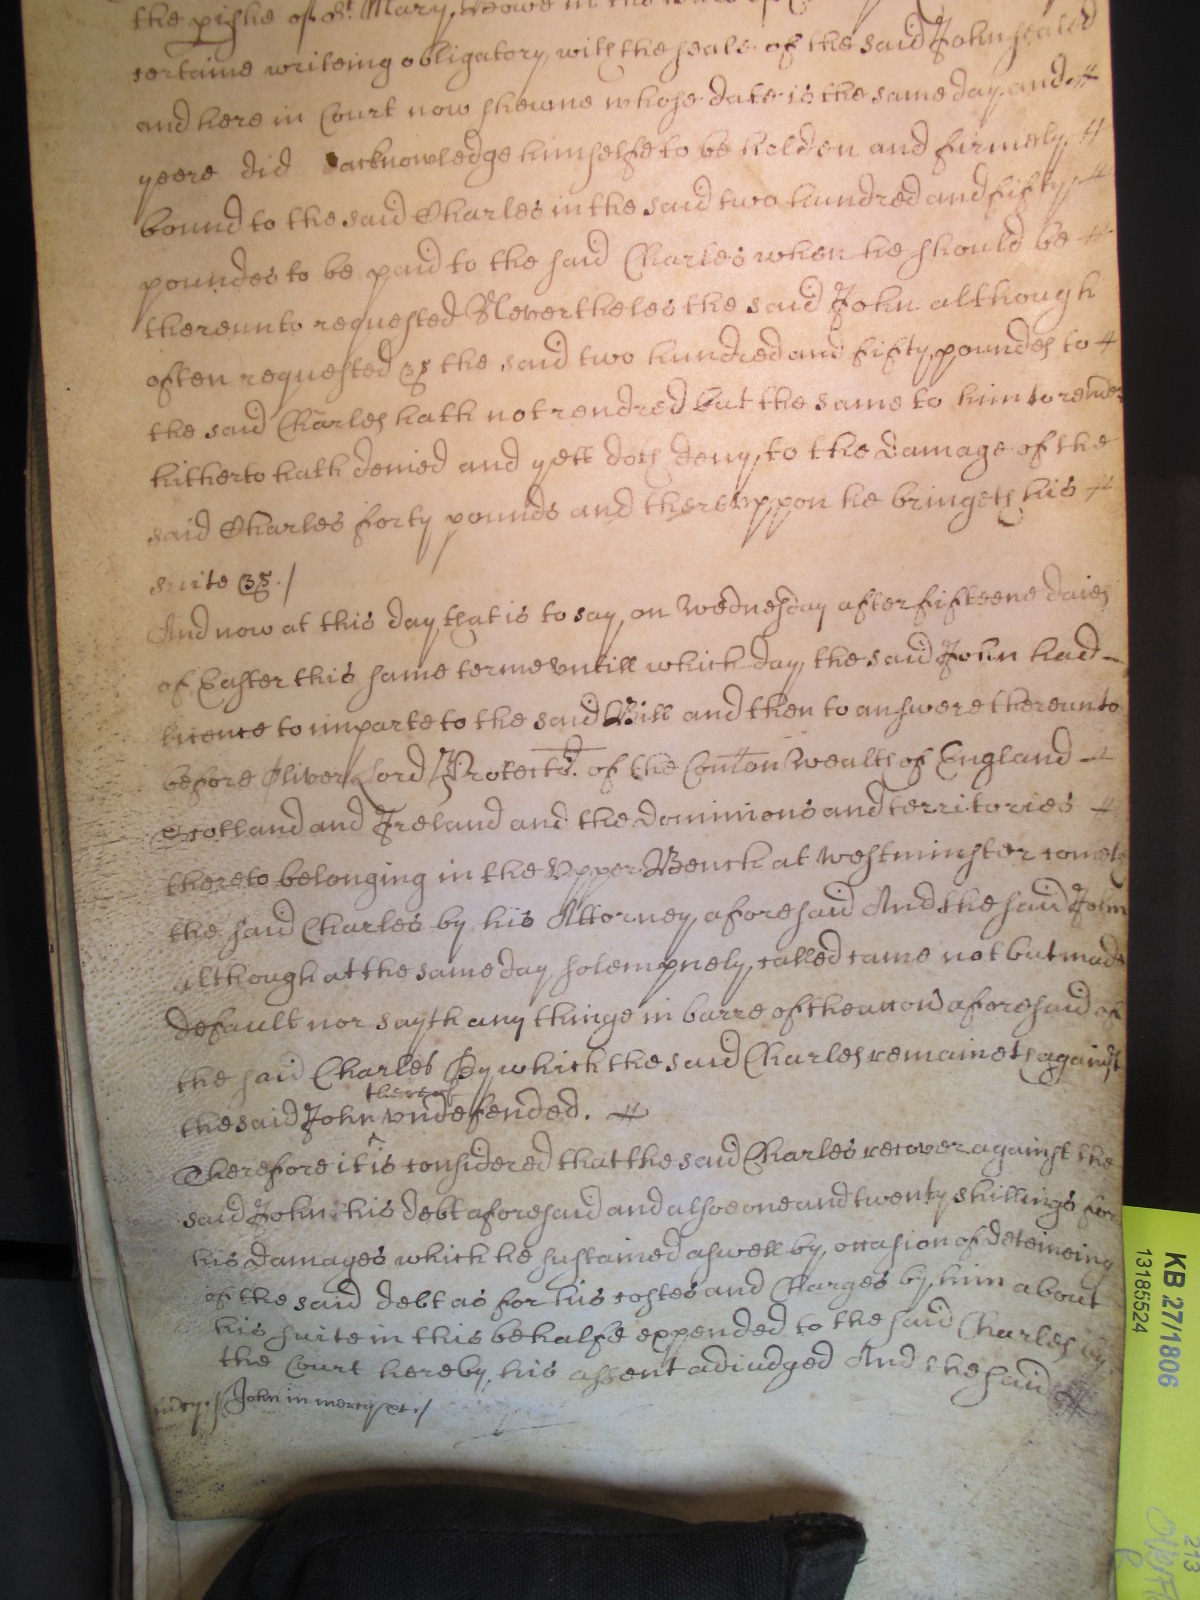 the pishe of St. Mary Bowe in the
certaine writeing obligatory with the seale of the said John sealed
and here in Court now shewne whose date is the same day and
yeere did acknowledge himselfe to be holden and firmely
bound to the said Charles in the said two hundred and fifty
poundes to be paid to the said Charles when he should be
thereunto requested Nevertheles the said John although
often requested &c the said two hundred and fifty poundes to
the said Charles hath not rendred but the same to him to render
hitherto hath denied and yett doth deny to the damage of the
said Charles forty pounds and thereuppon he bringeth his
suite &c./
And now at this day that is to say on Wednesday after fifteene daies
of Easter this same terme untill which day the said John had
licence to imparle to the said Bill and then to answere thereunto
before Oliver Lord Protector of the Comon Wealth of England
Scotland and Ireland and the dominions and territories
thereto belonging in the Upper Bench at Westminster cometh
the said Charles by his Attorney aforesaid And the said John
Although at the same day solempnely called came not but made
default nor sayth any thinge in barre of the accon aforesaid of
the said Charles By which the said Charles remaineth against
thereof
the said John undefended.
Therefore it is considered that the said Charles recover against the
said John his debt aforesaid and alsoe one and twenty shillings for
his damages which he sustained aswell by occasion of deteineing
of the said debt as for his costes and Charges by him about
his suite in this behalfe expended to the said Charles by
the Court hereby his assent adiudged And the said
mcy./ John in mercy &c./
KB 27/1806
13185524
213